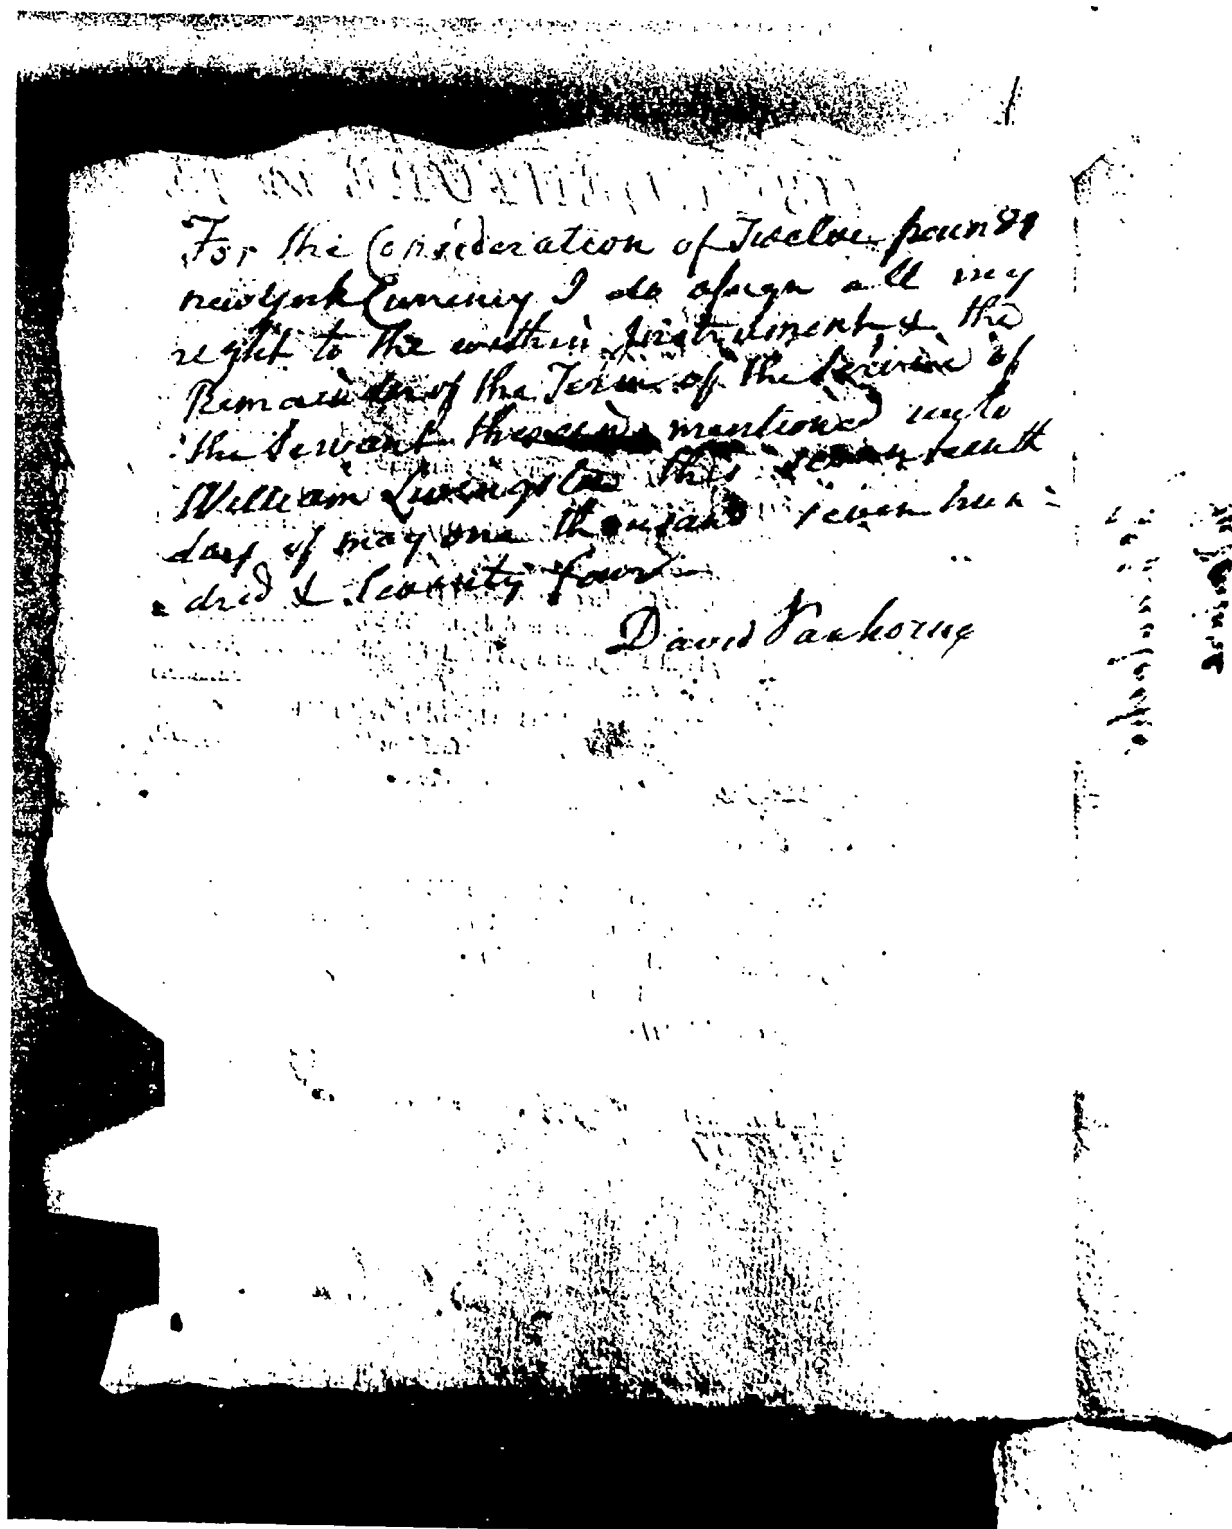 For the Consideration of Twelve pounds
newyork Currency I do assign all my
right to the within Instrument & the
Remainder of the Term of the Service of
the Servant mentioned unto
William Livingston this seventeenth
day of may one thousand seven hun-
-dred & Seventy four
David Vanhorne